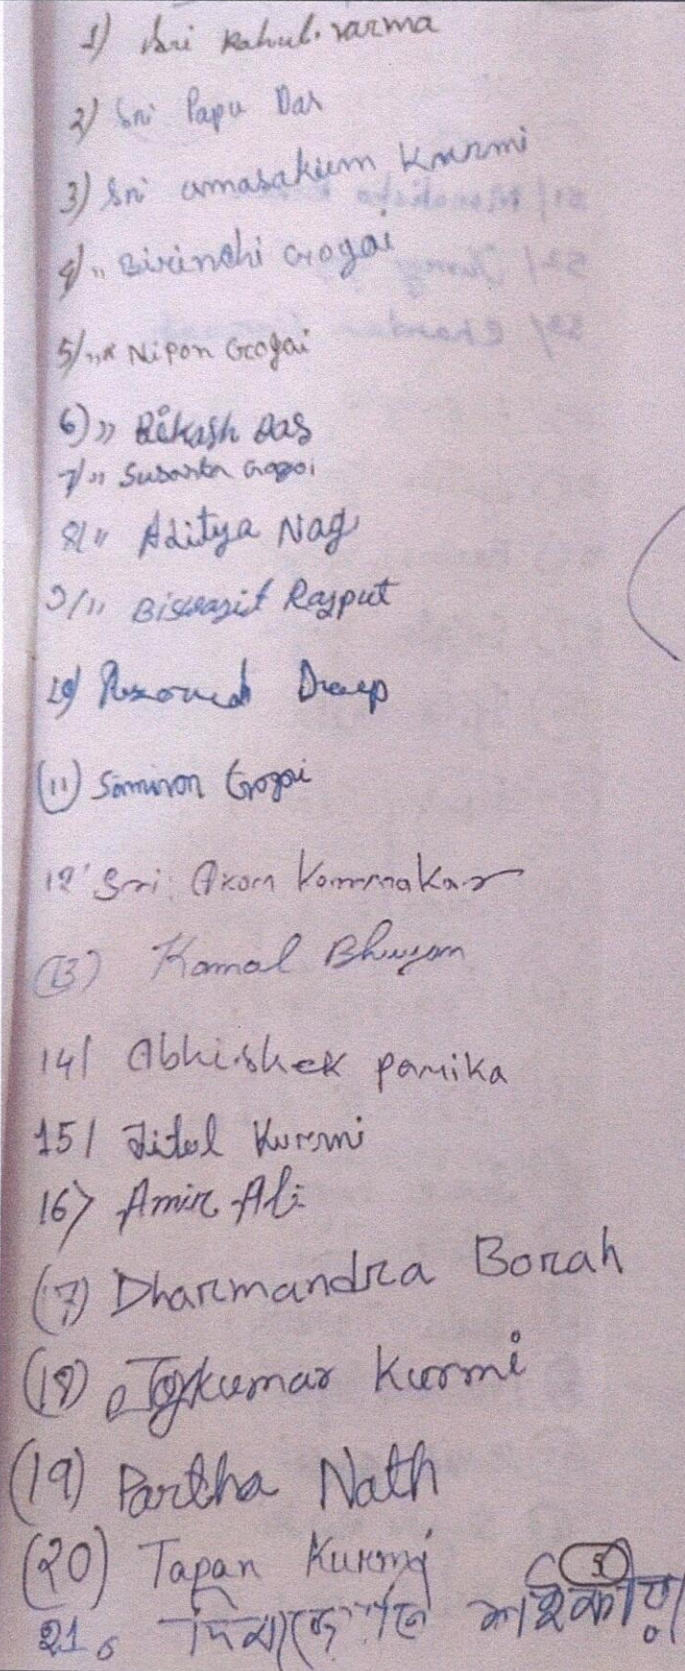 1) Sri Rahul varma
2) Sri Papu Das
3) Sri amasakium Kurmi
4) " Birinchi Gogoi
5) " Nipon Gogai
6) " Bikash Das
7) " Susanta Gogoi
8) " Aditya Nag
9) " Biswajit Rajput
10)
(11) Samiron Gogoi
12 Sri Akom Kommakar
(13) Kamal Bhuyan
14/ Abhishek panika
15/ Jitul Kurmi
16) Amir Ali
(17) Dharmandra Borah
(18) Kurmi
(19) Partha Nath
(20) Tapan Kurmi
5
21. দিব্যজ্যোতি